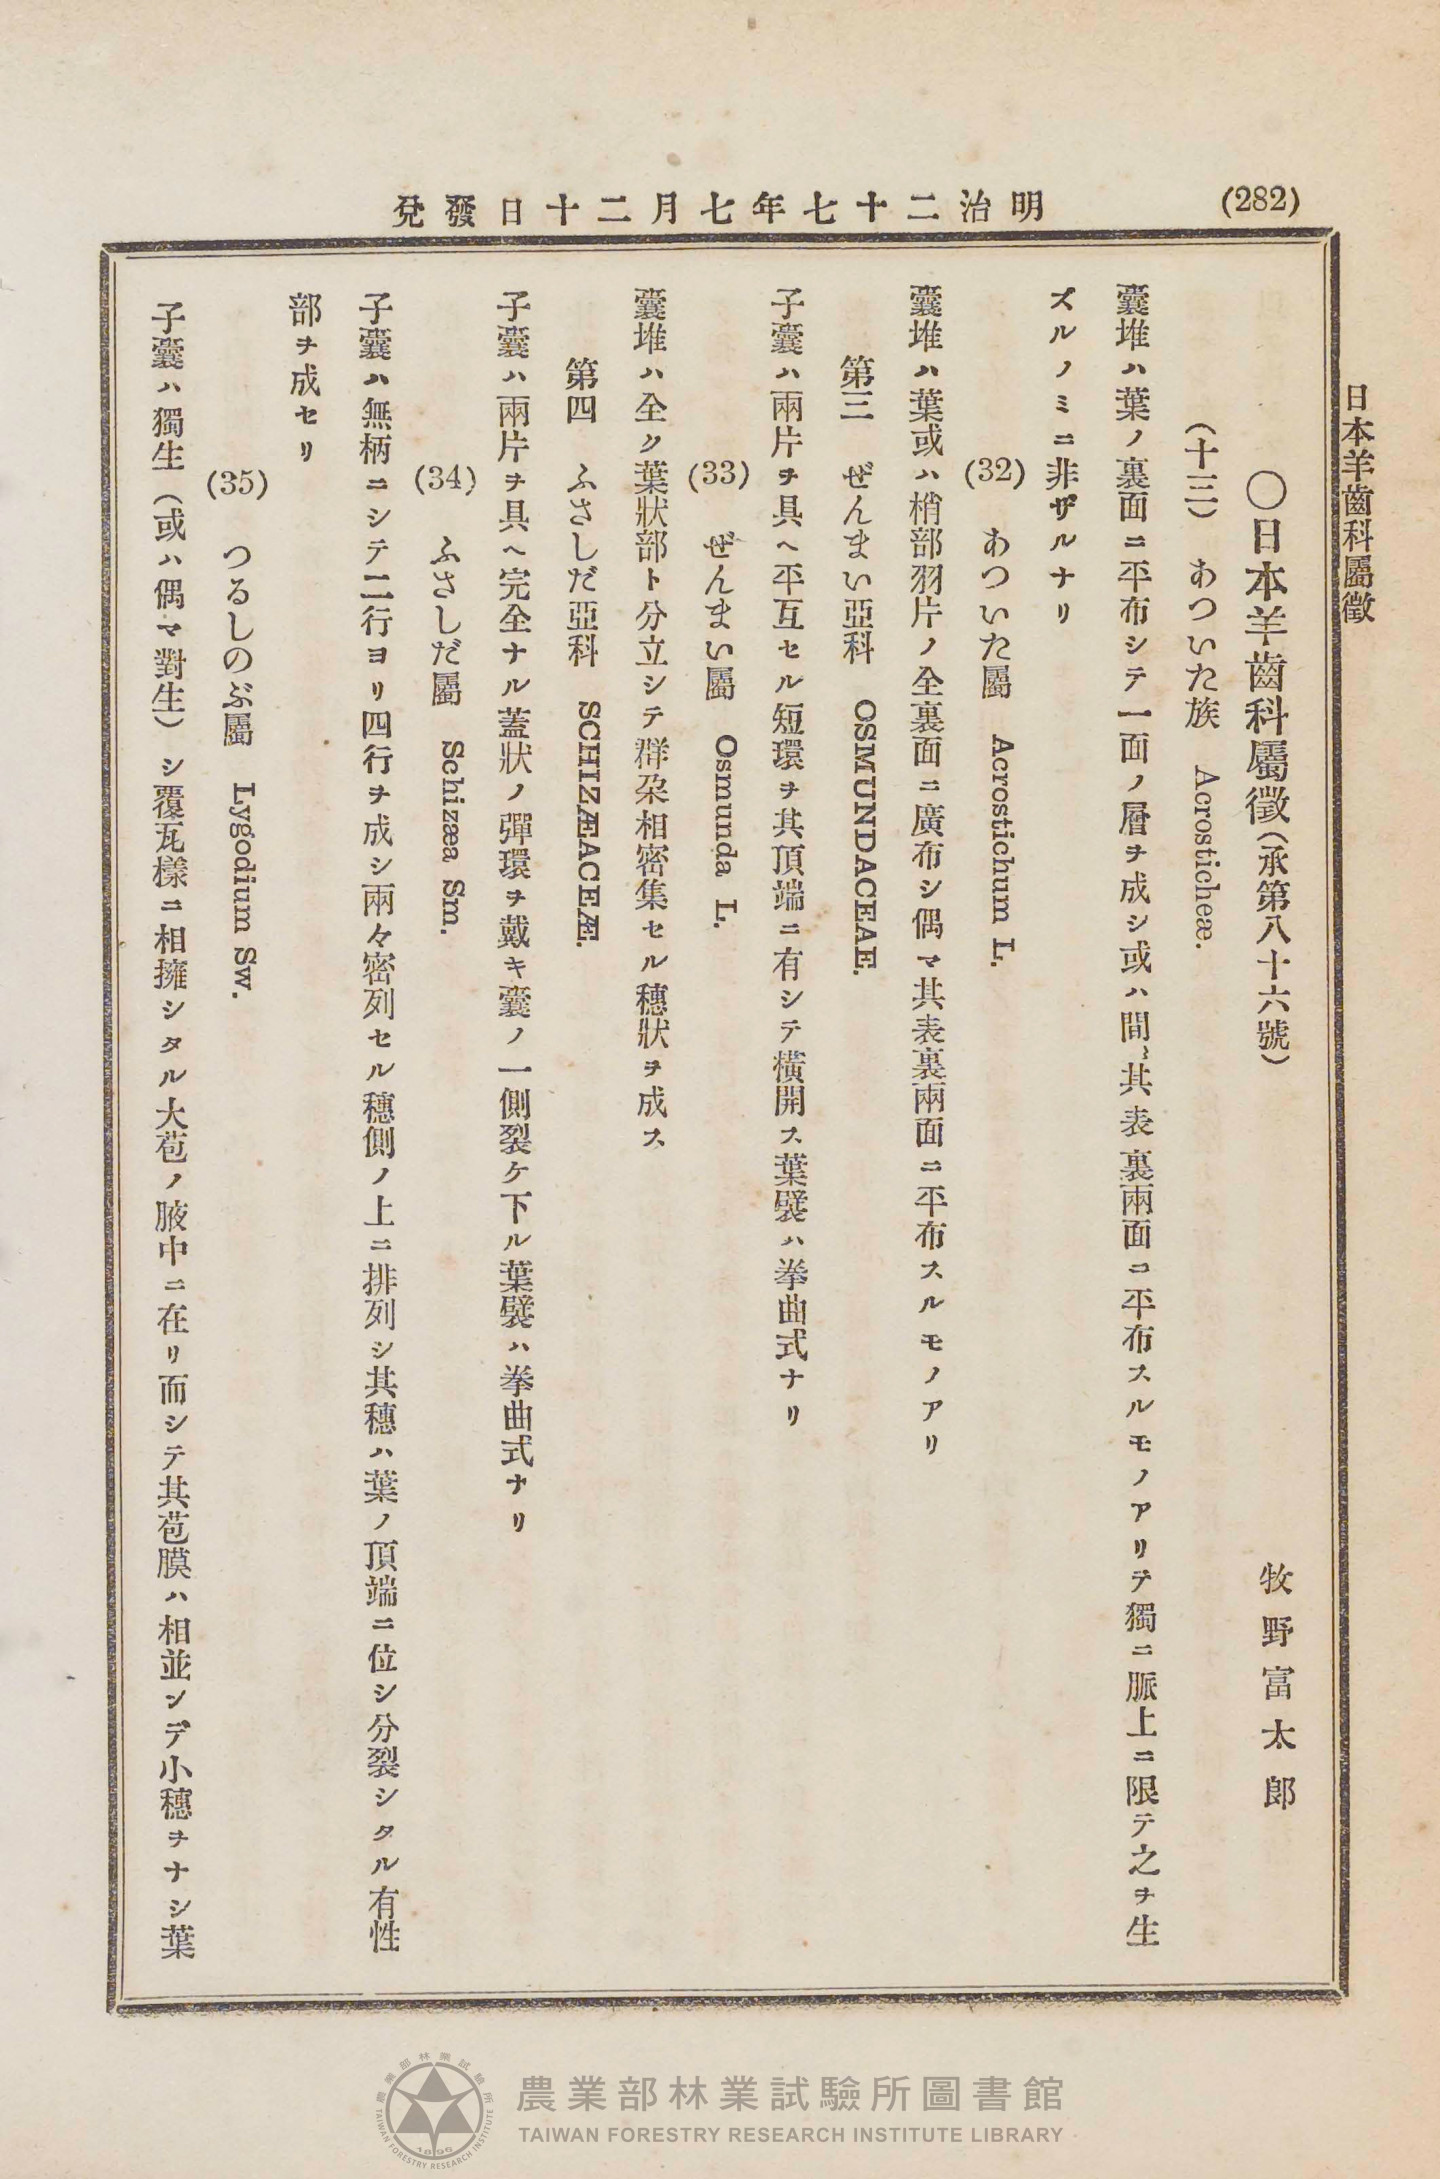 (282)
明治二十七年七月二十日發兌
日本羊齒科屬徵
〇日本羊齒科屬徵(承第八十六號) 牧野富太郎
(十三) あついた族 Acrosticheæ.
囊堆ハ葉ノ裏面ニ平布シテ一面ノ層ヲ成シ或ハ間〻其表裏兩面ニ平布スルモノアリテ獨ニ脈上ニ限テ之ヲ生
ズルノミニ非ザルナリ
(32) あついた屬 Acrostichum L.
囊堆ハ葉或ハ梢部羽片ノ全裏面ニ廣布シ偶マ其表裏兩面ニ平布スルモノアリ
第三 ぜんまい亞科 OSMUNDACEAE.
子囊ハ兩片ヲ具ヘ平互セル短環ヲ其頂端ニ有シテ橫開ス葉襞ハ拳曲式ナリ
(33) ぜんまい屬 Osmunda L.
囊堆ハ全ク葉狀部ト分立シテ群朶相密集セル穗狀ヲ成ス
第四 ふさしだ亞科 SCHIZÆACEÆ.
子囊ハ兩片ヲ具ヘ完全ナル蓋狀ノ彈環ヲ戴キ囊ノ一側裂ケ下ル葉襞ハ拳曲式ナリ
(34) ふさしだ屬 Schizæa Sm.
子囊ハ無柄ニシテ二行ヨリ四行ヲ成シ兩々密列セル穗側ノ上ニ排列シ其穗ハ葉ノ頂端ニ位シ分裂シタル有性
部ヲ成セリ
(35) つるしのぶ屬 Lygodium Sw.
子囊ハ獨生(或ハ偶マ對生)シ覆瓦樣ニ相擁シタル大苞ノ腋中ニ在リ而シテ其苞膜ハ相並ンデ小穗ヲナシ葉
農業部林業試驗所圖書館
TAIWAN FORESTRY RESEARCH INSTITUTE LIBRARY
農業部林業試驗所
TAIWAN FORESTRY RESEARCH INSTITUTE
1896